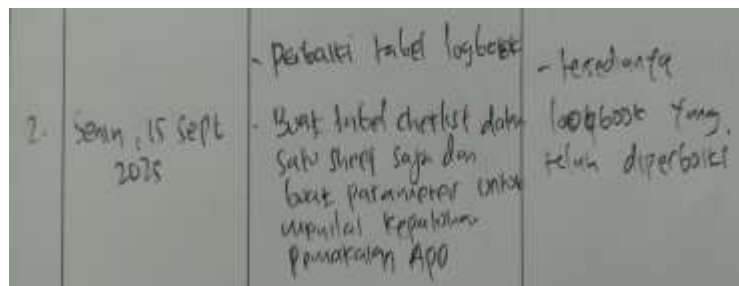 2.
Senin, 15 Sept
2025
- Perbaiki tabel logbook
- Buat tabel cheklist dalam
satu sheet saja dan
buat parameter untuk
menilai kepatuhan
pemakaian APD
- tersedianya
lookbook yang
telah diperbaiki